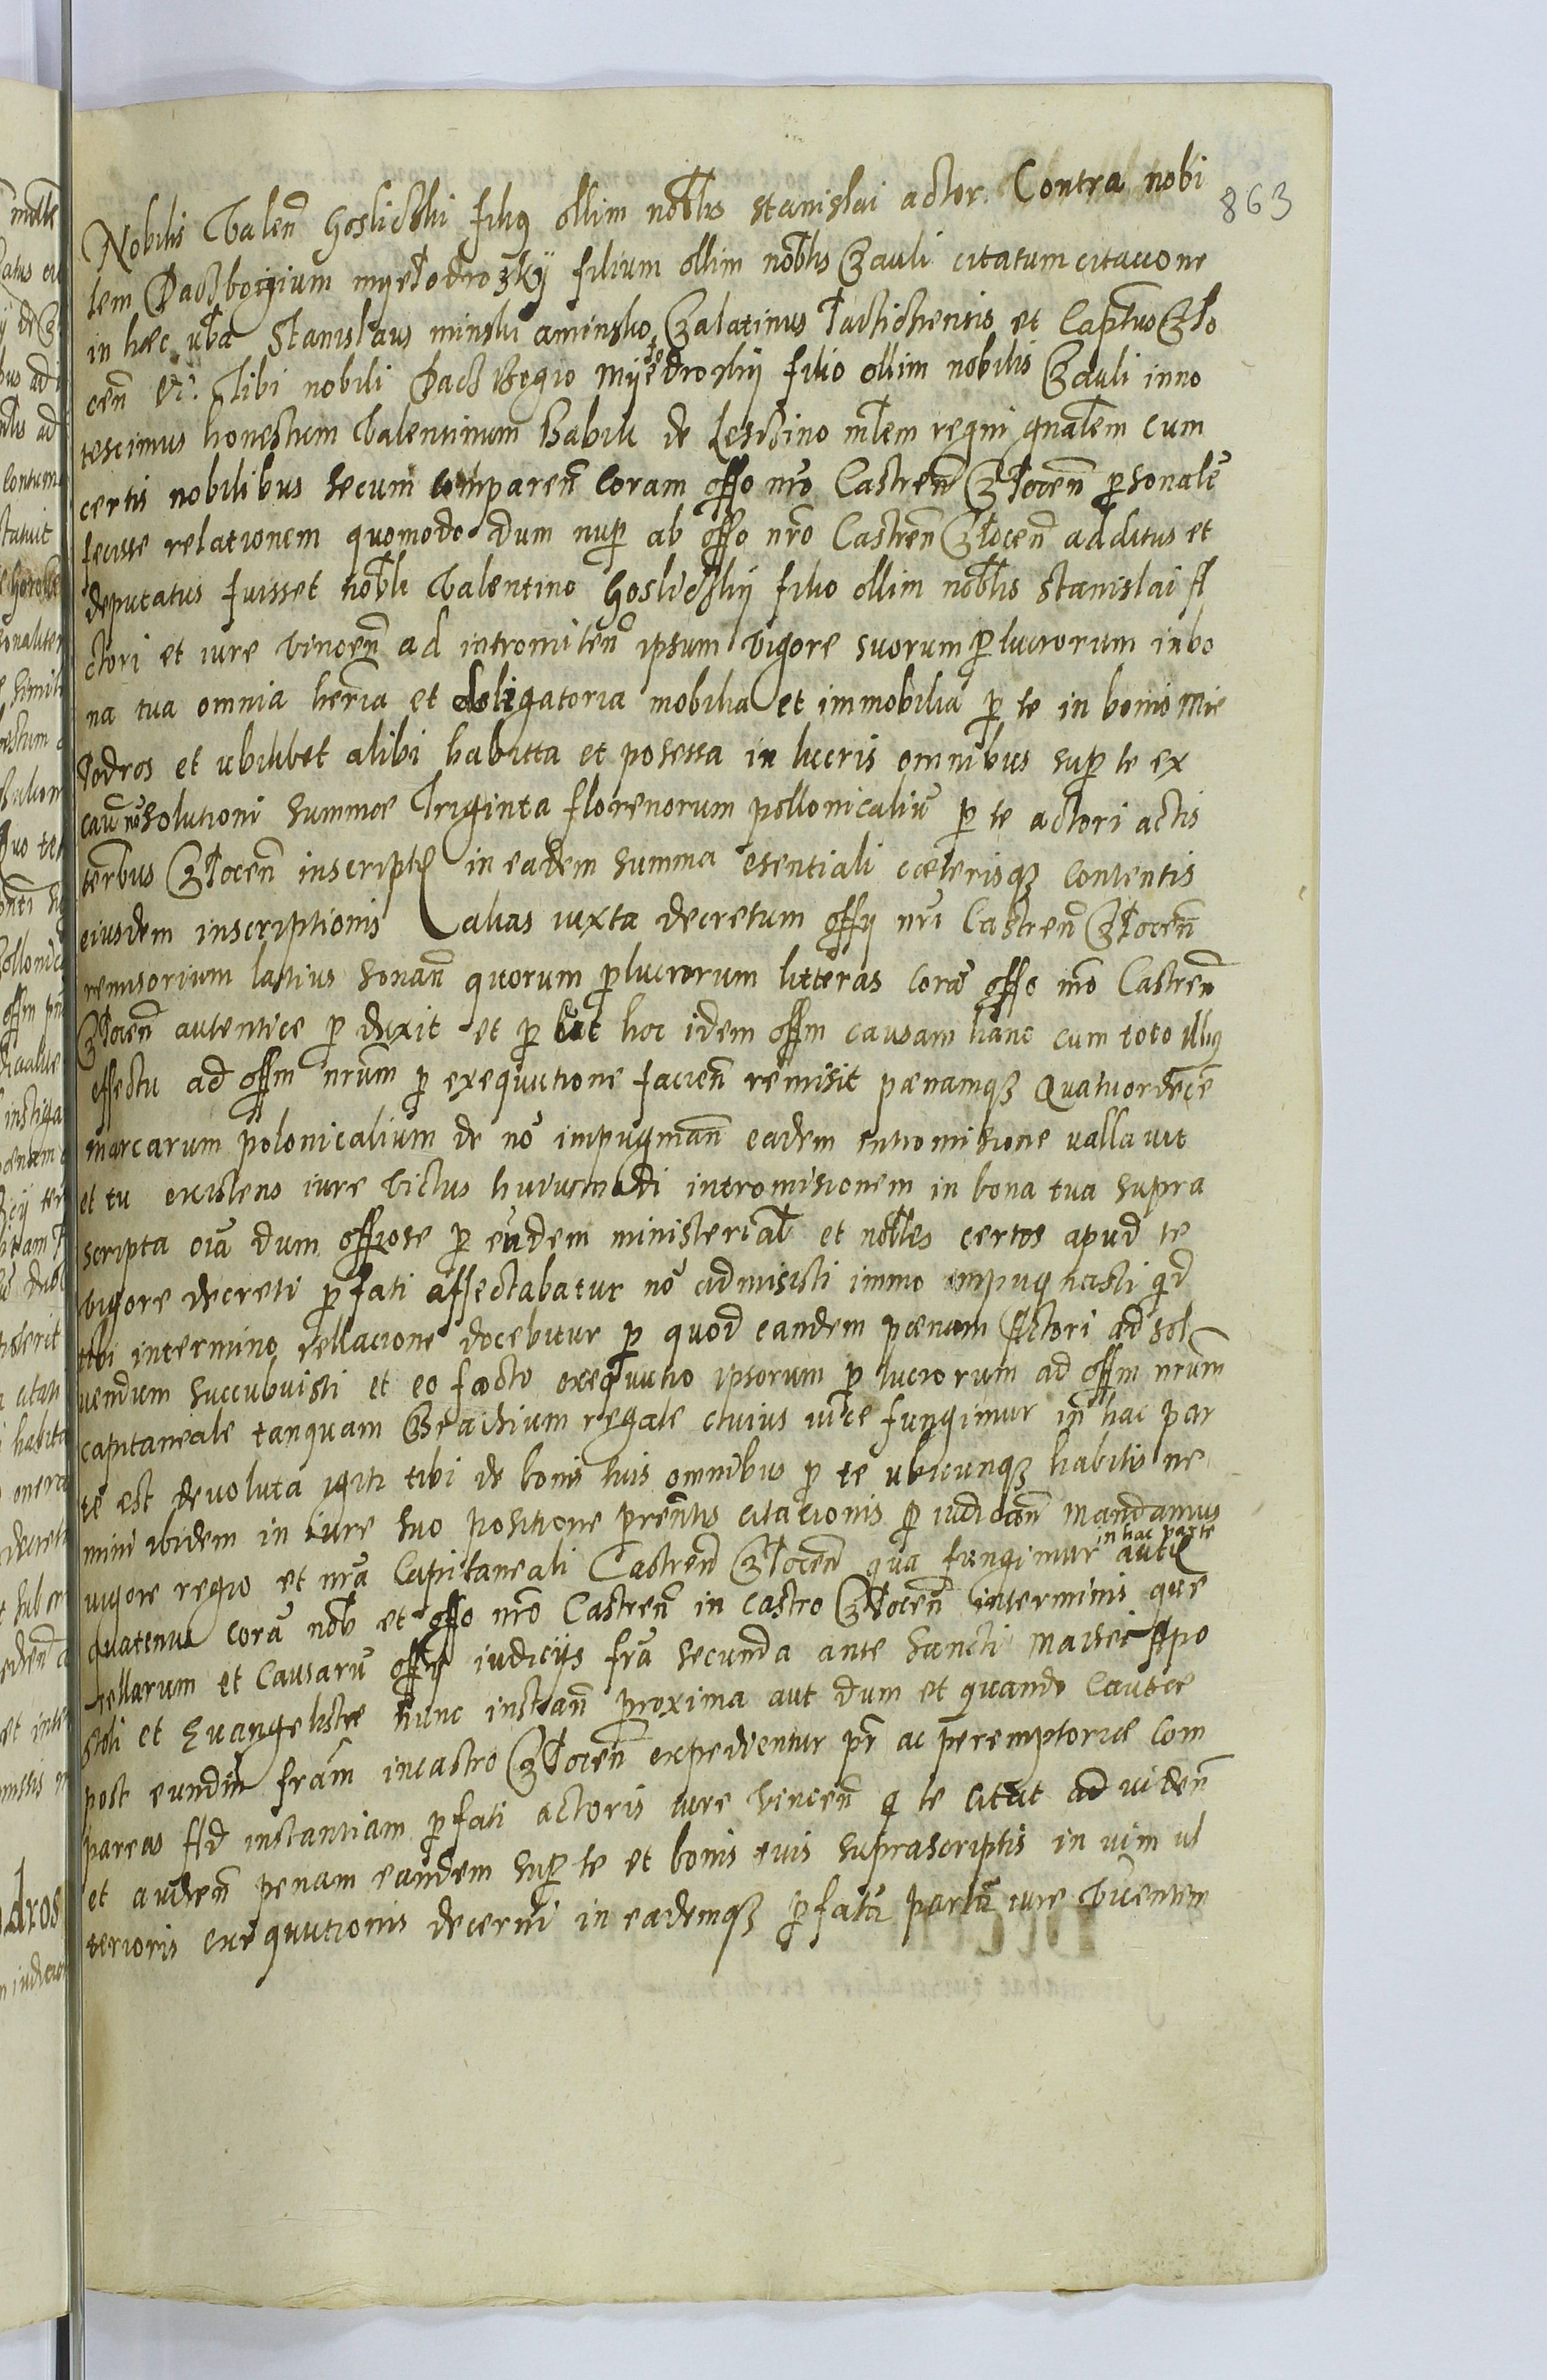 863
Nobilis Valen̄ Goslickii filiꝯ ollim nobłis Stanislai actor. Contra nobi
lem Dadzbogium myełodrozkÿ filium ollim nobłis Pauli citatum citacione
in hæc vba Stanislaus minski aminsko Palatinus łacticzensis et Captus Pło
cen̄ etc. Tibi nobili Dadzbogio Myełodroskij filio ollim nobilis Pauli inno
tescimus honestum Valentinum Babik de Lesczino młem regni gnałem cum
certis nobilibus secum comparen̄ coram offo nro Castren̄ Płocen̄ psonale
fecisse relationem quomodo dum nup ab offo nro Castren̄ Płocen̄ additus et
deputatus fuisset nobli Valentino Goslickij filio ollim nobłis Stanislai A
ctori et iure vincen̄ ad intromiten̄ ipsum vigore suorum plucrorum in bo
na tua omnia heria et obligatoria mobilia et immobilia p te in bonis Mie
łodros et ubilibet alibi habitta et posessa in lucris omnibus sup te ex
cau no solutioni summæ Triginta florenorum pollonicaliu p te actori actis
terbus Płocen̄ inscriptꝭ in eadem summa esentiali cæterisqꝫ contentis
eiusdem inscriptionis alias iuxta decretum offij nri Castren̄ Płocen̄
remisorium lasius sonan̄ quorum plucrorum litteras cora offo nro Castren̄
Płocen̄ autentice p duxit et p ut hoc idem offm causam hanc cum toto illiꝯ
effectu ad offm nrum p exequutione facien̄ remisit pænamqꝫ quatuordecē
marcarum polonicalium de nō impugnan̄ eadem intromisione vallavit
et tu existens iure victus huiusmodi intromisionem in bona tua supra
scripta oia dum offiose p eundem ministerialē et nobłes certos apud te
vigore decreti pfati affectabatur nō admisisti immo impugnasti qd
tibi in termino rellacione docebitur p quod eandem pænam Actori ad sol
vendum succubuisti et eo facto exequutio ipsorum p lucrorum ad offm nrum
capitaneale tanquam Brachium regale cuius vice fungimur in hac par
te est devoluta igitr tibi de bonis tuis omnibus p te ubicunqꝫ habitis ne
mini ibidem in iure suo positione prentis citacionis p iudican̄ mandamus
vigore regio et nra Capitaneali Castren̄ Płocen̄ qua fungimur in hac parte autte
quatenus cora nob et offo nro Castren̄ in castro Płocen̄ in terminis que
rellarum et causaru offij iudicijs fra secunda ante sancti Mathei Apo
stoli et Evangelistæ nunc instan̄ proxima aut dum et quando causæ
post eundm fram in castro Płocen̄ expedientur pr ac peremptoriæ com
pareas Ad instantiam pfati actoris iure vincen̄ q te citat ad viden̄
et audien̄ penam eandem sup te et bonis tuis suprascriptis in vim ul
terioris exequutionis decerni in eademqꝫ pfata parta iure vicentem